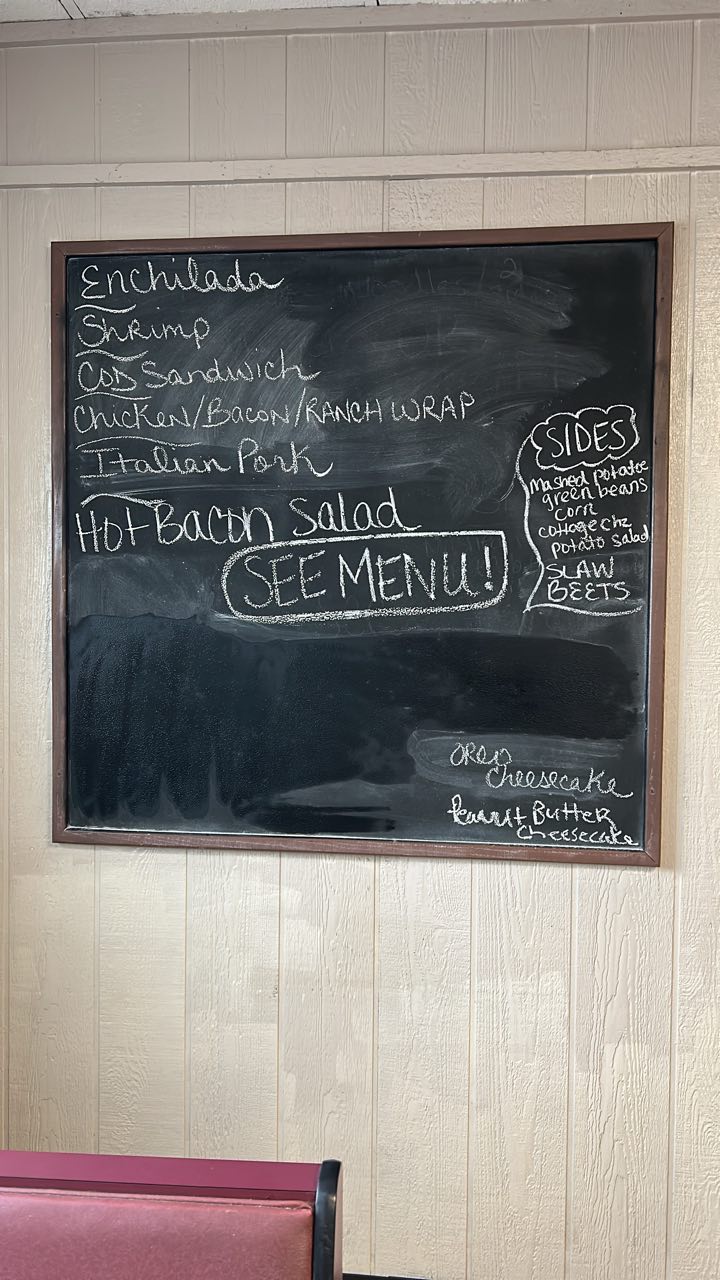 Enchilada
Shrimp
COD Sandwich
Chicken/Bacon/RANCH WRAP
Italian Pork
Hot Bacon Salad
SEE MENU!
SIDES
Mashed potatoe
green beans
corn
cottage chz
potato salad
SLAW
BEETS
OREO
cheesecake
Peanut Butter
Cheesecake